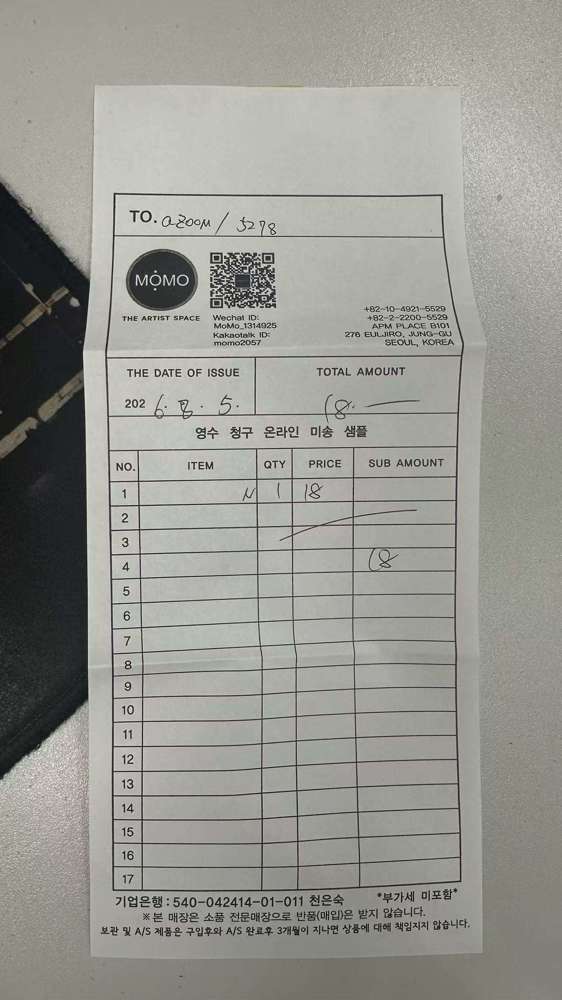 TO. azoom / 5278
MOMO
THE ARTIST SPACE
Wechat ID:
MoMo_1314925
Kakaotalk ID:
momo2057
+82-10-4921-5529
+82-2-2200-5529
APM PLACE B101
276 EULJIRO, JUNG-GU
SEOUL, KOREA
THE DATE OF ISSUE TOTAL AMOUNT
2026. 8. 5. 18.
영수 청구 온라인 미송 샘플
NO. ITEM QTY PRICE SUB AMOUNT
1 N 1 18
2
3
4 18
5
6
7
8
9
10
11
12
13
14
15
16
17
기업은행 : 540-042414-01-011 천은숙 *부가세 미포함*
※본 매장은 소품 전문매장으로 반품(매입)은 받지 않습니다.
보관 및 A/S 제품은 구입후와 A/S 완료후 3개월이 지나면 상품에 대해 책임지지 않습니다.